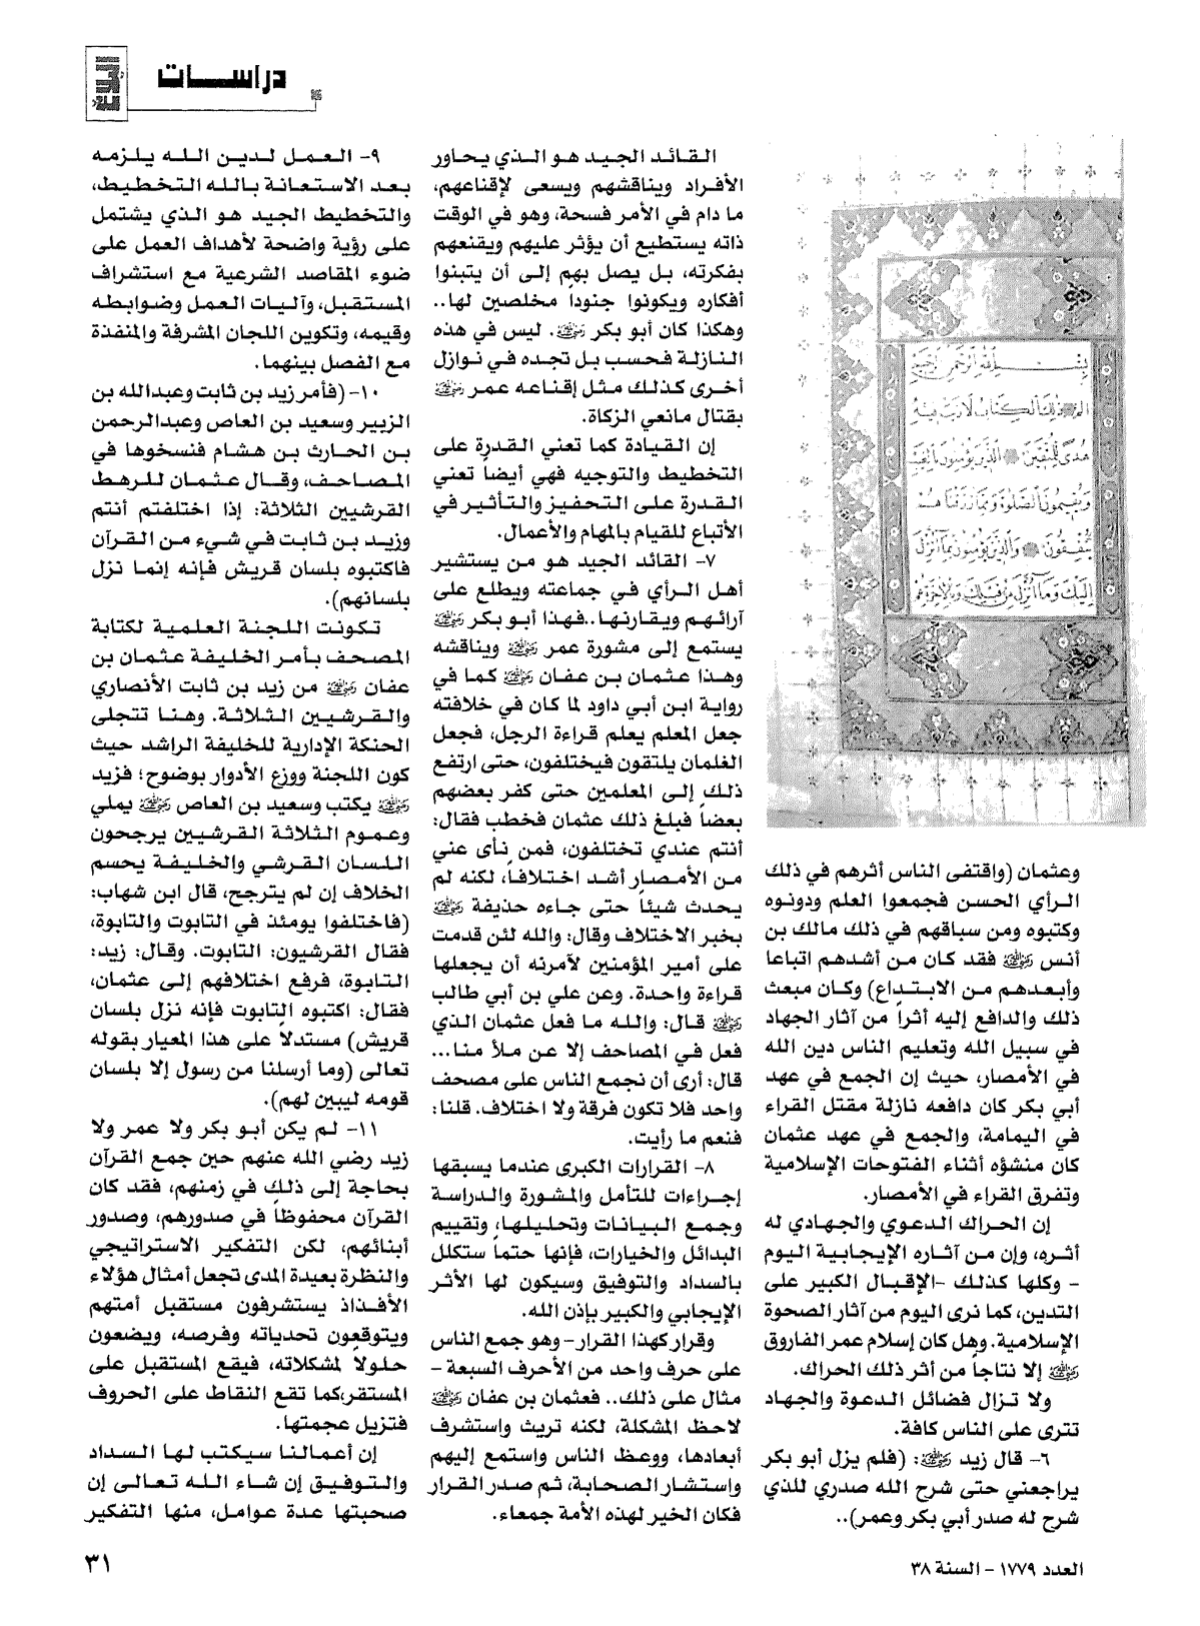 دراسات
بسم الله الرحمن الرحيم
الم ذلك الكتاب لا ريب فيه
هدى للمتقين الذين يؤمنون
ويقيمون الصلوة ومما رزقناهم
ينفقون والذين يؤمنون بما أنزل
إليك وما أنزل من قبلك وبالآخرة هم
وعثمان (واقتفى الناس أثرهم في ذلك
الرأي الحسن فجمعوا العلم ودونوه
وكتبوه ومن سباقهم في ذلك مالك بن
أنس رضي الله عنه فقد كان من أشدهم اتباعا
وأبعدهم من الابتداع) وكان مبعث
ذلك والدافع إليه أثراً من آثار الجهاد
في سبيل الله وتعليم الناس دين الله
في الأمصار، حيث إن الجمع في عهد
أبي بكر كان دافعه نازلة مقتل القراء
في اليمامة، والجمع في عهد عثمان
كان منشؤه أثناء الفتوحات الإسلامية
وتفرق القراء في الأمصار.
إن الحراك الدعوي والجهادي له
أثره، وإن من آثاره الإيجابية اليوم
- وكلها كذلك -الإقبال الكبير على
التدين، كما نرى اليوم من آثار الصحوة
الإسلامية. وهل كان إسلام عمر الفاروق
رضي الله عنه إلا نتاجاً من أثر ذلك الحراك.
ولا تزال فضائل الدعوة والجهاد
تترى على الناس كافة.
٦- قال زيد رضي الله عنه: (فلم يزل أبو بكر
يراجعني حتى شرح الله صدري للذي
شرح له صدر أبي بكر وعمر)..
القائد الجيد هو الذي يحاور
الأفراد ويناقشهم ويسعى لإقناعهم،
ما دام في الأمر فسحة، وهو في الوقت
ذاته يستطيع أن يؤثر عليهم ويقنعهم
بفكرته، بل يصل بهم إلى أن يتبنوا
أفكاره ويكونوا جنوداً مخلصين لها..
وهكذا كان أبو بكر رضي الله عنه. ليس في هذه
النازلة فحسب بل تجده في نوازل
أخرى كذلك مثل إقناعه عمر رضي الله عنه
بقتال مانعي الزكاة.
إن القيادة كما تعني القدرة على
التخطيط والتوجيه فهي أيضاً تعني
القدرة على التحفيز والتأثير في
الأتباع للقيام بالمهام والأعمال.
٧- القائد الجيد هو من يستشير
أهل الرأي في جماعته ويطلع على
آرائهم ويقارنها..فهذا أبو بكر رضي الله عنه
يستمع إلى مشورة عمر رضي الله عنه ويناقشه
وهذا عثمان بن عفان رضي الله عنه كما في
رواية ابن أبي داود لما كان في خلافته
جعل المعلم يعلم قراءة الرجل، فجعل
الغلمان يلتقون فيختلفون، حتى ارتفع
ذلك إلى المعلمين حتى كفر بعضهم
بعضاً فبلغ ذلك عثمان فخطب فقال:
أنتم عندي تختلفون، فمن نأى عني
من الأمصار أشد اختلافاً، لكنه لم
يحدث شيئاً حتى جاءه حذيفة رضي الله عنه
بخبر الاختلاف وقال: والله لئن قدمت
على أمير المؤمنين لآمرنه أن يجعلها
قراءة واحدة. وعن علي بن أبي طالب
رضي الله عنه قال: والله ما فعل عثمان الذي
فعل في المصاحف إلا عن ملأ منا...
قال: أرى أن نجمع الناس على مصحف
واحد فلا تكون فرقة ولا اختلاف. قلنا:
فنعم ما رأيت.
٨- القرارات الكبرى عندما يسبقها
إجراءات للتأمل والمشورة والدراسة
وجمع البيانات وتحليلها، وتقييم
البدائل والخيارات، فإنها حتماً ستكلل
بالسداد والتوفيق وسيكون لها الأثر
الإيجابي والكبير بإذن الله.
وقرار كهذا القرار- وهو جمع الناس
على حرف واحد من الأحرف السبعة -
مثال على ذلك.. فعثمان بن عفان رضي الله عنه
لاحظ المشكلة، لكنه تريث واستشرف
أبعادها، ووعظ الناس واستمع إليهم
واستشار الصحابة، ثم صدر القرار
فكان الخير لهذه الأمة جمعاء.
٩- العمل لدين الله يلزمه
بعد الاستعانة بالله التخطيط،
والتخطيط الجيد هو الذي يشتمل
على رؤية واضحة لأهداف العمل على
ضوء المقاصد الشرعية مع استشراف
المستقبل، وآليات العمل وضوابطه
وقيمه، وتكوين اللجان المشرفة والمنفذة
مع الفصل بينهما.
١٠- (فأمر زيد بن ثابت وعبدالله بن
الزبير وسعيد بن العاص وعبدالرحمن
بن الحارث بن هشام فنسخوها في
المصاحف، وقال عثمان للرهط
القرشيين الثلاثة: إذا اختلفتم أنتم
وزيد بن ثابت في شيء من القرآن
فاكتبوه بلسان قريش فإنه إنما نزل
بلسانهم).
تكونت اللجنة العلمية لكتابة
المصحف بأمر الخليفة عثمان بن
عفان رضي الله عنه من زيد بن ثابت الأنصاري
والقرشيين الثلاثة. وهنا تتجلى
الحنكة الإدارية للخليفة الراشد حيث
كون اللجنة ووزع الأدوار بوضوح؛ فزيد
رضي الله عنه يكتب وسعيد بن العاص رضي الله عنه يملي
وعموم الثلاثة القرشيين يرجحون
اللسان القرشي والخليفة يحسم
الخلاف إن لم يترجح، قال ابن شهاب:
(فاختلفوا يومئذ في التابوت والتابوة،
فقال القرشيون: التابوت. وقال: زيد:
التابوة، فرفع اختلافهم إلى عثمان،
فقال: اكتبوه التابوت فإنه نزل بلسان
قريش) مستدلاً على هذا المعيار بقوله
تعالى (وما أرسلنا من رسول إلا بلسان
قومه ليبين لهم).
١١- لم يكن أبو بكر ولا عمر ولا
زيد رضي الله عنهم حين جمع القرآن
بحاجة إلى ذلك في زمنهم، فقد كان
القرآن محفوظاً في صدورهم، وصدور
أبنائهم، لكن التفكير الاستراتيجي
والنظرة بعيدة المدى تجعل أمثال هؤلاء
الأفذاذ يستشرفون مستقبل أمتهم
ويتوقعون تحدياته وفرصه، ويضعون
حلولاً لمشكلاته، فيقع المستقبل على
المستقر،كما تقع النقاط على الحروف
فتزيل عجمتها.
إن أعمالنا سيكتب لها السداد
والتوفيق إن شاء الله تعالى إن
صحبتها عدة عوامل، منها التفكير
العدد ١٧٧٩ - السنة ٣٨
٣١